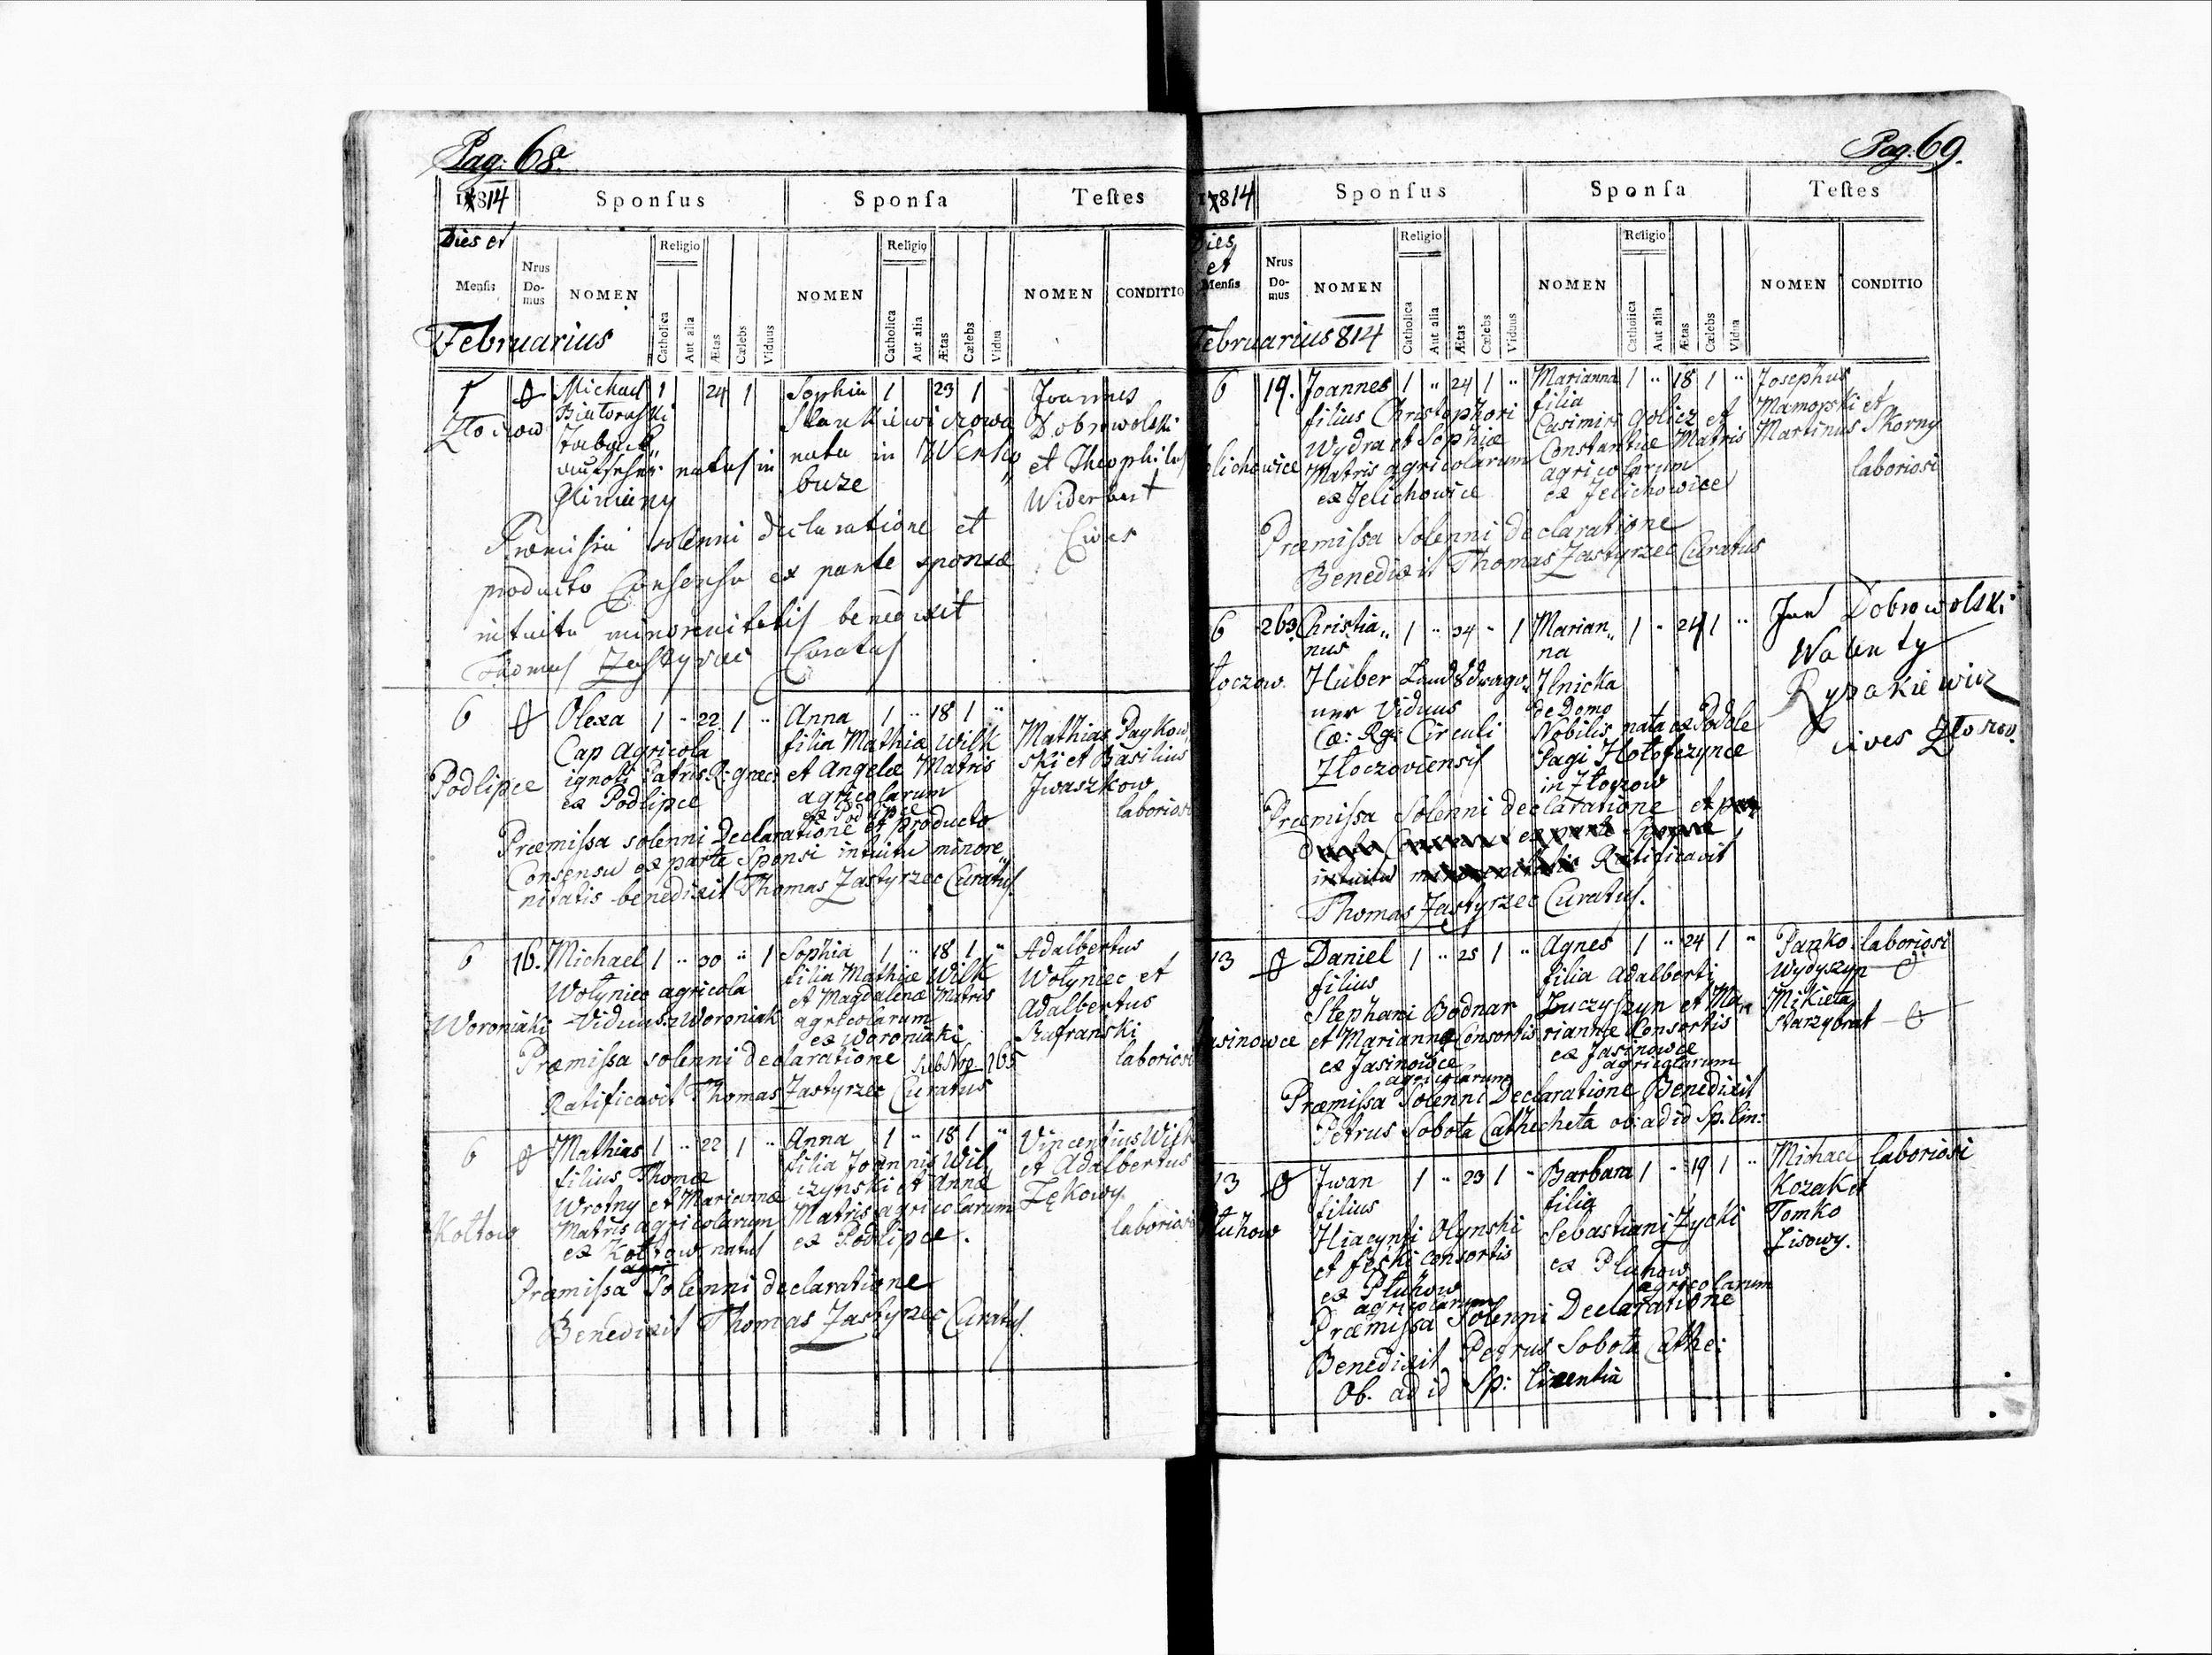 Pag: 68.
1814 Sponsus Sponsa Testes
Dies et
Mensis Nrus Domus NOMEN Religio Catholica Aut alia Ætas Cælebs Viduus NOMEN Religio Catholica Aut alia Ætas Cælebs Vidua NOMEN CONDITIO
Februarius
1 Michael 1 24 1 Sophia 1 23 1 Joannes
Złoczow Stankiewiczowa Dobrowolski
natus in nata in et Theophilus
buze
Gliniany
Præmissa solenni declaratione et Cives
producto Consensu ex parte sponsæ
intuitu minorenitatis benedixit
Thomas Zastyrzec Curatus
6 Olexa 1 " 22 1 " Anna 1 " 18 1 " Mathias Paykow
Cap agricola filia Mathiæ Wilk ski et Basilius
Podlipce ignoti Patris R. græci et Angelæ Matris Jwaszkow
ex Podlipce agricolarum laboriosi
ex Podlipce
Præmissa solenni Declaratione et producto
Consensu ex parte Sponsi intuitu minore
nitatis benedixit Thomas Zastyrzec Curatus
6 16. Michael 1 " 30 " 1 Sophia 1 " 18 1 " Adalbertus
Wołyniec agricola filia Mathiæ Wilk Wołyniec et
et Magdalenæ Matris Adalbertus
Woroniaki Viduus Woroniak agricolarum Rufranski
ex Woroniaki laboriosi
Præmissa solenni declaratione sub Nro 265
Ratificavit Thomas Zastyrzec Curatus
6 Mathias 1 " 22 1 " Anna 1 " 18 1 " Vincentius Wilk
filius Thomæ filia Joannis Wil et Adalbertus
Wrotny et Mariannæ czynski et Annæ Zękowy
Kołtow Matris agricolarum Matris agricolarum laboriosi
ex Kołtow natus ex Podlipce.
agri
Præmissa Solenni declaratione
Benedixit Thomas Zastyrzec Curatus
Pag: 69.
1814 Sponsus Sponsa Testes
Dies et
Mensis Nrus Domus NOMEN Religio Catholica Aut alia Ætas Cælebs Viduus NOMEN Religio Catholica Aut alia Ætas Cælebs Vidua NOMEN CONDITIO
Februarius 814
6 19. Joannes 1 " 24 1 " Marianna 1 " 18 1 " Josephus
filius Christophori filia Mamorski et
Wydra et Sophiæ Casimiri Golicz et Martinus Skorny
Matris agricolarum Constantiæ Matris laboriosi
ex Jelichowice agricolarum
ex Jelichowice
Præmissa Solenni Declaratione
Benedixit Thomas Zastyrzec Curatus
6 263. Christia 1 " 34 " 1 Marian 1 " 24 1 " Jan Dobrowolski
nus na Walenty
Huber Landsdrago Jlnicka Rypakiewicz
ner Viduus de Domo
Cæ: Rg: Circuli Nobilis nata ex Podole cives
Złoczoviensis Pagi Hołofczynce
in Złoczow
Præmissa Solenni declaratione et
ex parte Sponsæ
intuitu Ratificavit
Thomas Zastyrzec Curatus.
13 Daniel 1 " 25 1 " Agnes 1 " 24 1 " Panko laboriosi
filius filia Adalberti Wydyszyn
Stephani Bodnar Łuczyszyn et Ma Mikieta
Jasinowce et Mariannæ Consortis riannæ Consortis Starzybrat
ex Jasinowce ex Jasinowce
agricolarum agricolarum
Præmissa Solenni Declaratione Benedixit
Petrus Sobota Cathecheta ob: ad id Sp: lin:
13 Jwan 1 " 23 1 " Barbara 1 " 19 1 " Michael laboriosi
filius filia Kozak et
Pluhow Hiacynti Olynski Sebastiani Zycki Tomko
et Feski Consortis ex Pluhow Lisowy.
ex Pluhow agricolarum
agricolarum
Præmissa Solenni Declaratione
Benedixit Petrus Sobota Cathe:
Ob. ad id Sp: licentia